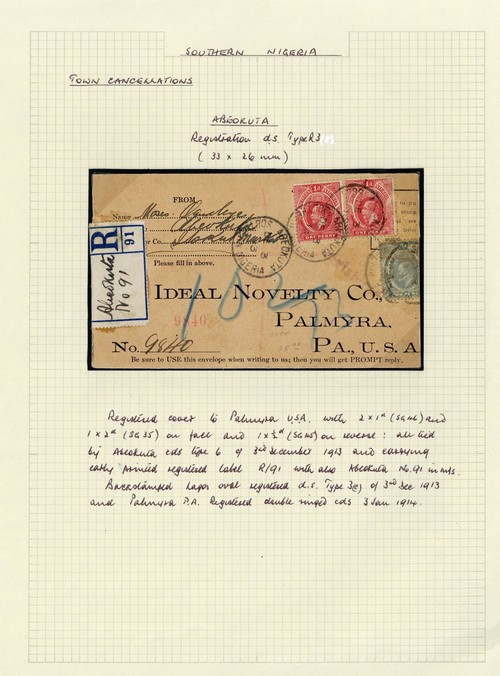 SOUTHERN NIGERIA
TOWN CANCELLATIONS
ABEOKUTA
Registration d.s. Type R3
(33 x 26 mm)
FROM
Name Moses
Co.
Please fill in above.
R
91
Abeokuta
No 91
IDEAL NOVELTY CO.,
PALMYRA,
PA., U.S.A
9840
No. 9840
Be sure to USE this envelope when writing to us; then you will get PROMPT reply.
Registered cover to Palmyra USA. with 2 x 1d (SG46) and
1 x 2d (SG35) on face and 1 x ½d (SG45) on reverse: all tied
by Abeokuta cds type 6 of 3rd December 1913 and carrying
early printed registered label R/91 with also Abeokuta No.91 in m/s.
Backstamped Lagos oval registered d.s. Type 3(e) of 3rd Dec 1913
and Palmyra P.A. Registered double ringed cds 3 Jan 1914.